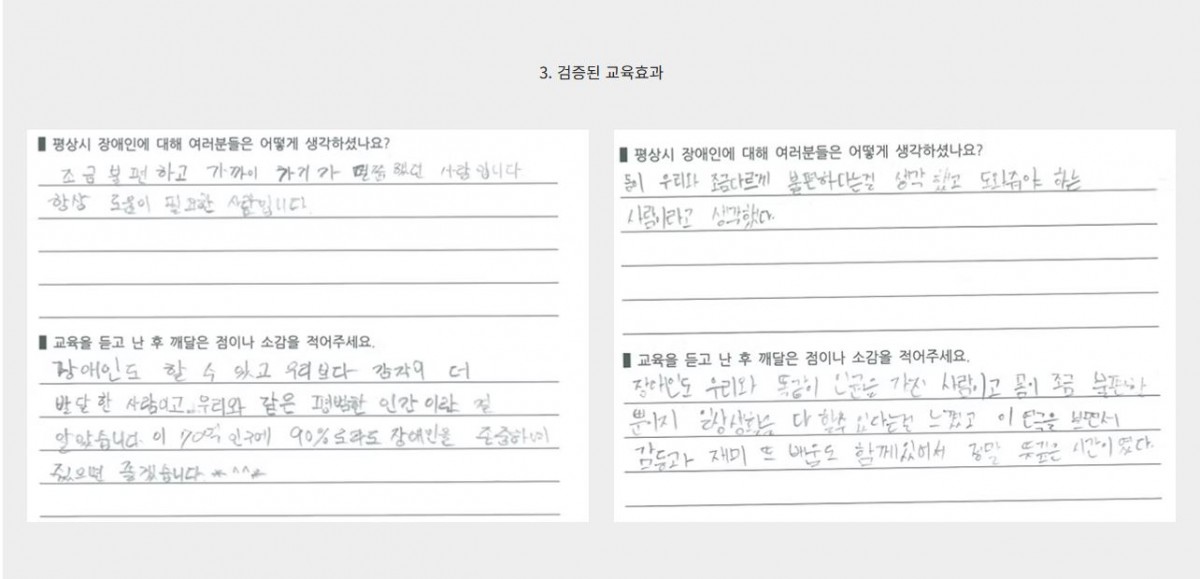 3. 검증된 교육효과
평상시 장애인에 대해 여러분들은 어떻게 생각하셨나요?
조금 불편하고 가까이 가기가 했던 사람입니다
항상 도움이 필요한 사람입니다.
교육을 듣고 난 후 깨달은 점이나 소감을 적어주세요.
장애인도 할 수 있고 우리보다 감각이 더
발달한 사람이고 우리와 같은 평범한 인간이란 걸
알았습니다. 이 70억 인구에 90%로라도 장애인을
줬으면 좋겠습니다 *^^*
평상시 장애인에 대해 여러분들은 어떻게 생각하셨나요?
우리와 조금다르게 불편하다는걸 생각했고 도와줘야 하는
사람이라고 생각했다.
교육을 듣고 난 후 깨달은 점이나 소감을 적어주세요.
장애인도 우리와 똑같이 가진 사람이고 몸이 조금 불편한
뿐이지 일상생활은 다 할수 있다는걸 느꼈고 이 연극을 보면서
감동과 재미 또 배움도 함께있어서 정말 뜻깊은 시간이였다.